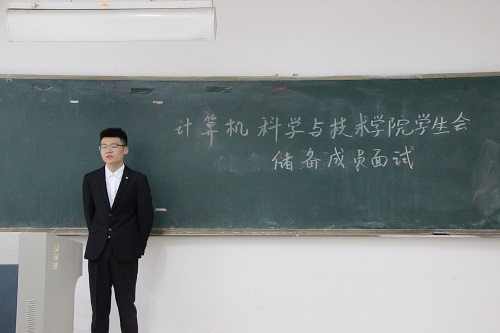 计算机科学与技术学院学生会
储备成员面试